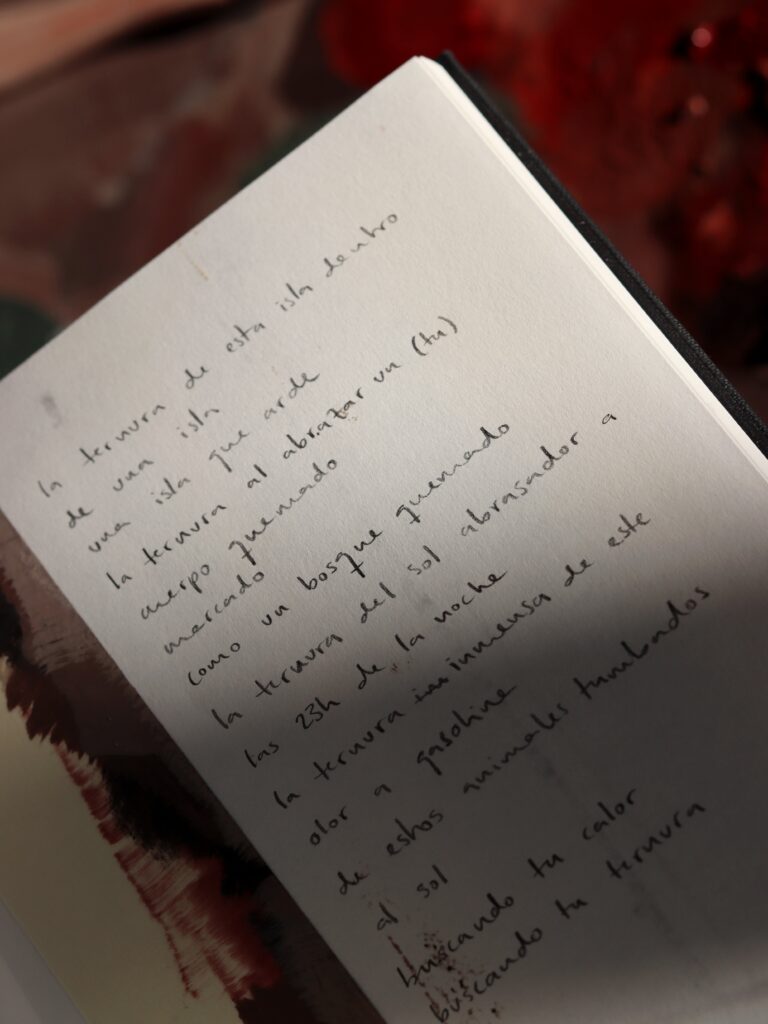 la ternura de esta isla dentro
de una isla
una isla que arde
la ternura al abrazar un (tu)
cuerpo quemado
marcado
como un bosque quemado
la ternura del sol abrasador a
las 23h de la noche
la ternura inmensa de este
olor a gasoline
de estos animales tumbados
al sol
buscando tu calor
buscando tu ternura